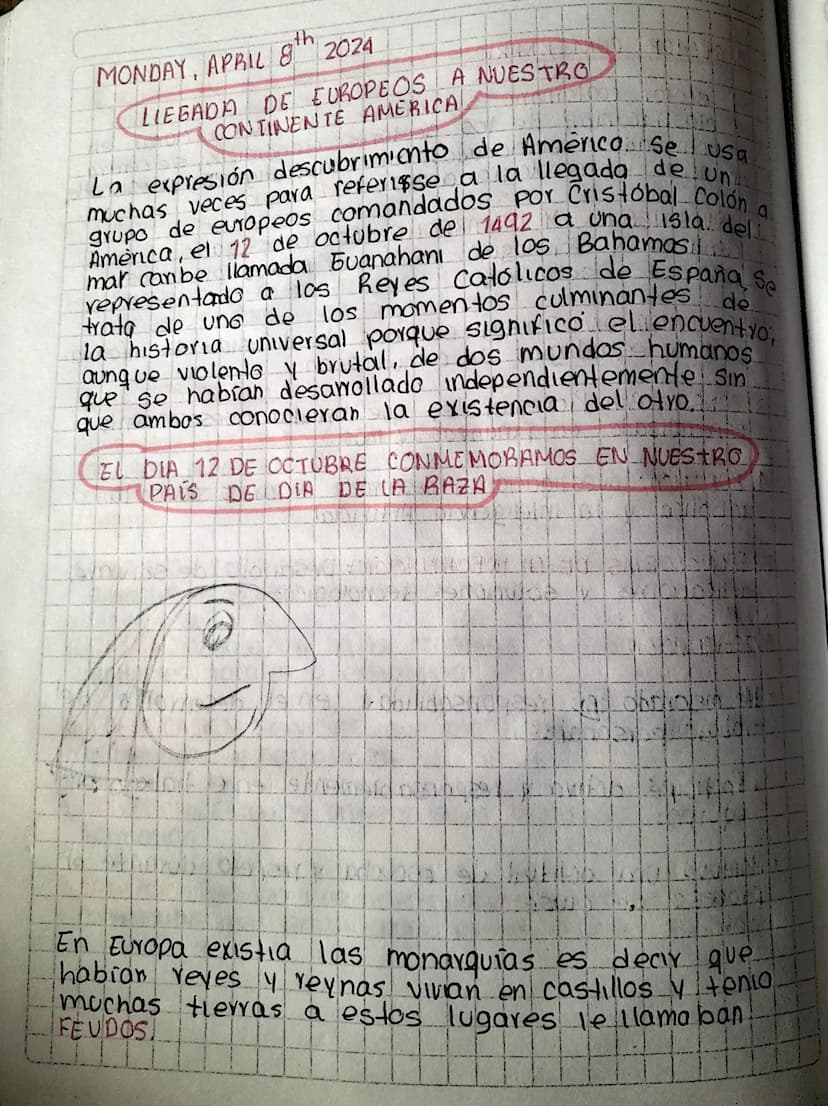 MONDAY, APRIL 8th 2024
LLEGADA DE EUROPEOS A NUESTRO
CONTINENTE AMERICA
La expresión descubrimiento de América se usa
muchas veces para referirse a la llegada de un
grupo de europeos comandados por Cristóbal Colón a
América, el 12 de octubre de 1492 a una isla del
mar caribe llamada Guanahani de los Bahamas
representado a los Reyes Católicos de España, Se
trata de uno de los momentos culminantes de
la historia universal porque significó el encuentro,
aunque violento y brutal, de dos mundos humanos
que se habían desarrollado independientemente sin
que ambos conocieran la existencia del otro.
EL DIA 12 DE OCTUBRE CONMEMORAMOS EN NUESTRO
PAÍS DE DIA DE LA RAZA
En Europa existia las monarquías es decir que
habían reyes y reynas vivian en castillos y tenia
muchas tierras a estos lugares le llamaban
FEUDOS.